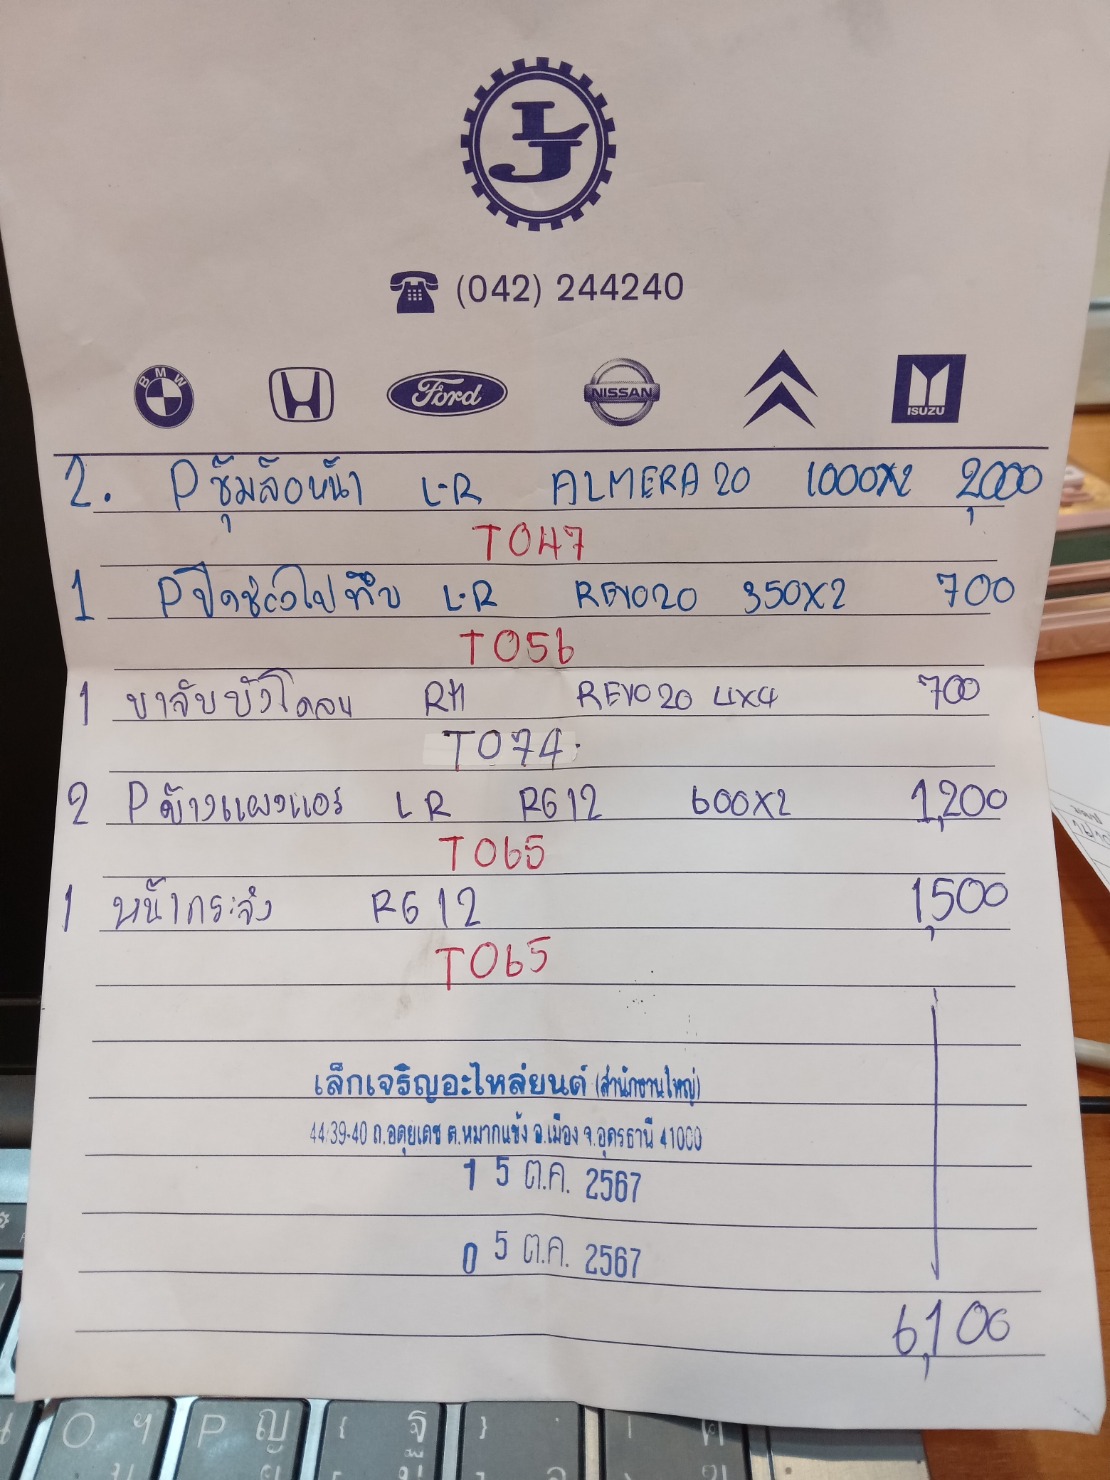 LJ
(042) 244240
BMW Ford NISSAN ISUZU
2. Pซุ้มล้อหน้า L-R ALMERA 20 1000x2 2,000
T047
1 Pปิดช่องไปทึบ L-R REVO20 350x2 700
T056
1 ขาจับบังโคลน RH REVO20 4x4 700
T074.
2 Pข้างแผงแอร์ L R RG12 600x2 1,200
T065
1 หน้ากระจัง RG 12 1,500
T065
เล็กเจริญอะไหล่ยนต์ (สำนักงานใหญ่)
44/39-40 ถ.อดุยเดช ต.หมากแข้ง อ.เมือง จ.อุดรธานี 41000
1 5 ต.ค. 2567
0 5 ต.ค. 2567
6,100
O ฯ P ญ { ฐ }